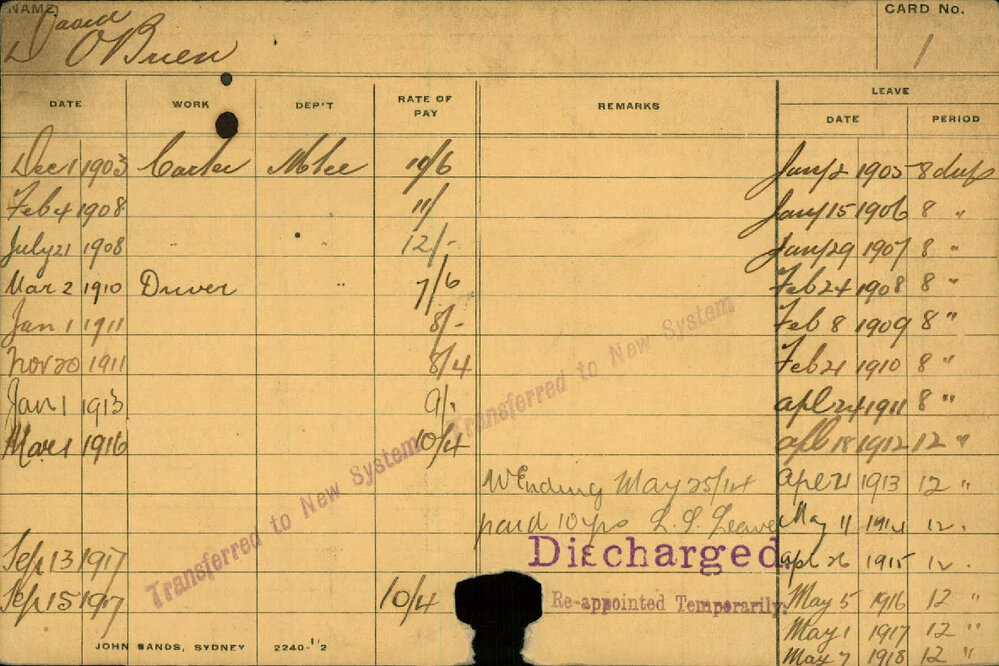 NAME David CARD No.
O'Brien 1
DATE WORK DEP'T RATE OF PAY REMARKS LEAVE
DATE PERIOD
Dec 1 1903 Carter 10/6 Jany 2 1905 8 days
Feb 4 1908 11/ Jany 15 1906 8 "
July 21 1908 12/- Jany 29 1907 8 "
Mar 2 1910 Driver " 7/6 Feb 24 1908 8 "
Jan 1 1911 8/- Feb 8 1909 8 "
Nov 20 1911 8/4 Feb 21 1910 8 "
Jan 1 1913 9/- Apl 24 1911 8 "
Mar 1 1916 10/4 Apl 18 1912 12 "
Transferred to New System Transferred to New System
W Ending May 25/14 Apl 21 1913 12 "
paid 10 yrs L. S. Leave May 11 1914 12 "
Sep 13 1917 Discharged. Apl 26 1915 12 "
Sep 15 1917 10/4 Re-appointed Temporarily. May 5 1916 12 "
May 1 1917 12 "
JOHN SANDS, SYDNEY 2240-1/2 May 7 1918 12 "